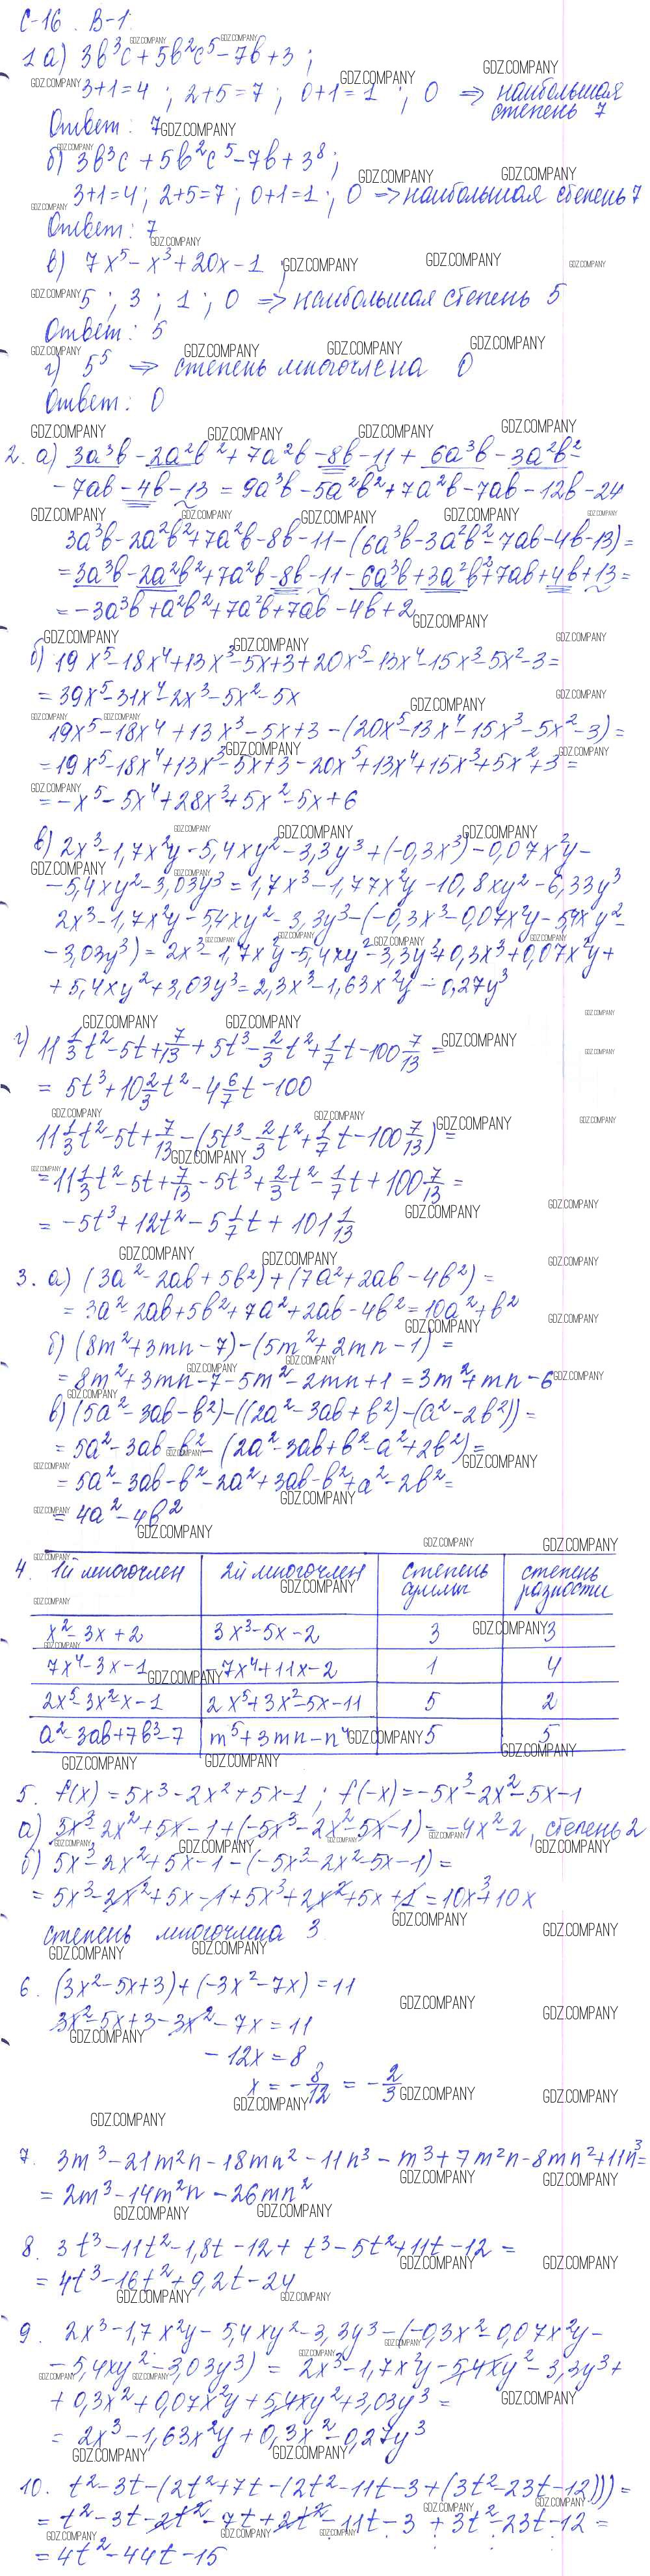 С-16. В-1.
1 а) 3b³c + 5b²c⁵ - 7b + 3;
3+1=4; 2+5=7; 0+1=1; 0 ⇒ наибольшая
степень 7
Ответ: 7
б) 3b³c + 5b²c⁵ - 7b + 3⁸;
3+1=4; 2+5=7; 0+1=1; 0 ⇒ наибольшая степень 7
Ответ: 7
в) 7x⁵ - x³ + 20x - 1;
5; 3; 1; 0 ⇒ наибольшая степень 5
Ответ: 5
г) 5⁵ ⇒ степень многочлена 0
Ответ: 0
2. а) 3a³b - 2a²b² + 7a²b - 8b - 11 + 6a³b - 3a²b² -
- 7ab - 4b - 13 = 9a³b - 5a²b² + 7a²b - 7ab - 12b - 24
3a³b - 2a²b² + 7a²b - 8b - 11 - (6a³b - 3a²b² - 7ab - 4b - 13) =
= 3a³b - 2a²b² + 7a²b - 8b - 11 - 6a³b + 3a²b² + 7ab + 4b + 13 =
= -3a³b + a²b² + 7a²b + 7ab - 4b + 2
б) 19x⁵ - 18x⁴ + 13x³ - 5x + 3 + 20x⁵ - 13x⁴ - 15x³ - 5x² - 3 =
= 39x⁵ - 31x⁴ - 2x³ - 5x² - 5x
19x⁵ - 18x⁴ + 13x³ - 5x + 3 - (20x⁵ - 13x⁴ - 15x³ - 5x² - 3) =
= 19x⁵ - 18x⁴ + 13x³ - 5x + 3 - 20x⁵ + 13x⁴ + 15x³ + 5x² + 3 =
= -x⁵ - 5x⁴ + 28x³ + 5x² - 5x + 6
в) 2x³ - 1,7x²y - 5,4xy² - 3,3y³ + (-0,3x³) - 0,07x²y -
- 5,4xy² - 3,03y³ = 1,7x³ - 1,77x²y - 10,8xy² - 6,33y³
2x³ - 1,7x²y - 5,4xy² - 3,3y³ - (-0,3x³ - 0,07x²y - 5,4xy² -
- 3,03y³) = 2x³ - 1,7x²y - 5,4xy² - 3,3y³ + 0,3x³ + 0,07x²y +
+ 5,4xy² + 3,03y³ = 2,3x³ - 1,63x²y - 0,27y³
г) 11 1/3 t² - 5t + 7/13 + 5t³ - 2/3 t² + 1/7 t - 100 7/13 =
= 5t³ + 10 2/3 t² - 4 6/7 t - 100
11 1/3 t² - 5t + 7/13 - (5t³ - 2/3 t² + 1/7 t - 100 7/13) =
= 11 1/3 t² - 5t + 7/13 - 5t³ + 2/3 t² - 1/7 t + 100 7/13 =
= -5t³ + 12t² - 5 1/7 t + 101 1/13
3. а) (3a² - 2ab + 5b²) + (7a² + 2ab - 4b²) =
= 3a² - 2ab + 5b² + 7a² + 2ab - 4b² = 10a² + b²
б) (8m² + 3mn - 7) - (5m² + 2mn - 1) =
= 8m² + 3mn - 7 - 5m² - 2mn + 1 = 3m² + mn - 6
в) (5a² - 3ab - b²) - ((2a² - 3ab + b²) - (a² - 2b²)) =
= 5a² - 3ab - b² - (2a² - 3ab + b² - a² + 2b²) =
= 5a² - 3ab - b² - 2a² + 3ab - b² + a² - 2b² =
= 4a² - 4b²
4. 1й многочлен 2й многочлен степень суммы степень разности
x² - 3x + 2 3x³ - 5x - 2 3 3
7x⁴ - 3x - 1 -7x⁴ + 11x - 2 1 4
2x⁵ - 3x² - x - 1 2x⁵ + 3x² - 5x - 11 5 2
a² - 3ab + 7b³ - 7 m⁵ + 3mn - n⁴ 5 5
5. f(x) = 5x³ - 2x² + 5x - 1; f(-x) = -5x³ - 2x² - 5x - 1
а) 5x³ - 2x² + 5x - 1 + (-5x³ - 2x² - 5x - 1) = -4x² - 2, степень 2
б) 5x³ - 2x² + 5x - 1 - (-5x³ - 2x² - 5x - 1) =
= 5x³ - 2x² + 5x - 1 + 5x³ + 2x² + 5x + 1 = 10x³ + 10x
степень многочлена 3
6. (3x² - 5x + 3) + (-3x² - 7x) = 11
3x² - 5x + 3 - 3x² - 7x = 11
- 12x = 8
x = - 8/12 = - 2/3
7. 3m³ - 21m²n - 18mn² - 11n³ - m³ + 7m²n - 8mn² + 11n³ =
= 2m³ - 14m²n - 26mn²
8. 3t³ - 11t² - 1,8t - 12 + t³ - 5t² + 11t - 12 =
= 4t³ - 16t² + 9,2t - 24
9. 2x³ - 1,7x²y - 5,4xy² - 3,3y³ - (-0,3x² - 0,07x²y -
- 5,4xy² - 3,03y³) = 2x³ - 1,7x²y - 5,4xy² - 3,3y³ +
+ 0,3x² + 0,07x²y + 5,4xy² + 3,03y³ =
= 2x³ - 1,63x²y + 0,3x² - 0,27y³
10. t² - 3t - (2t² + 7t - (2t² - 11t - 3 + (3t² - 23t - 12))) =
= t² - 3t - 2t² - 7t + 2t² - 11t - 3 + 3t² - 23t - 12 =
= 4t² - 44t - 15